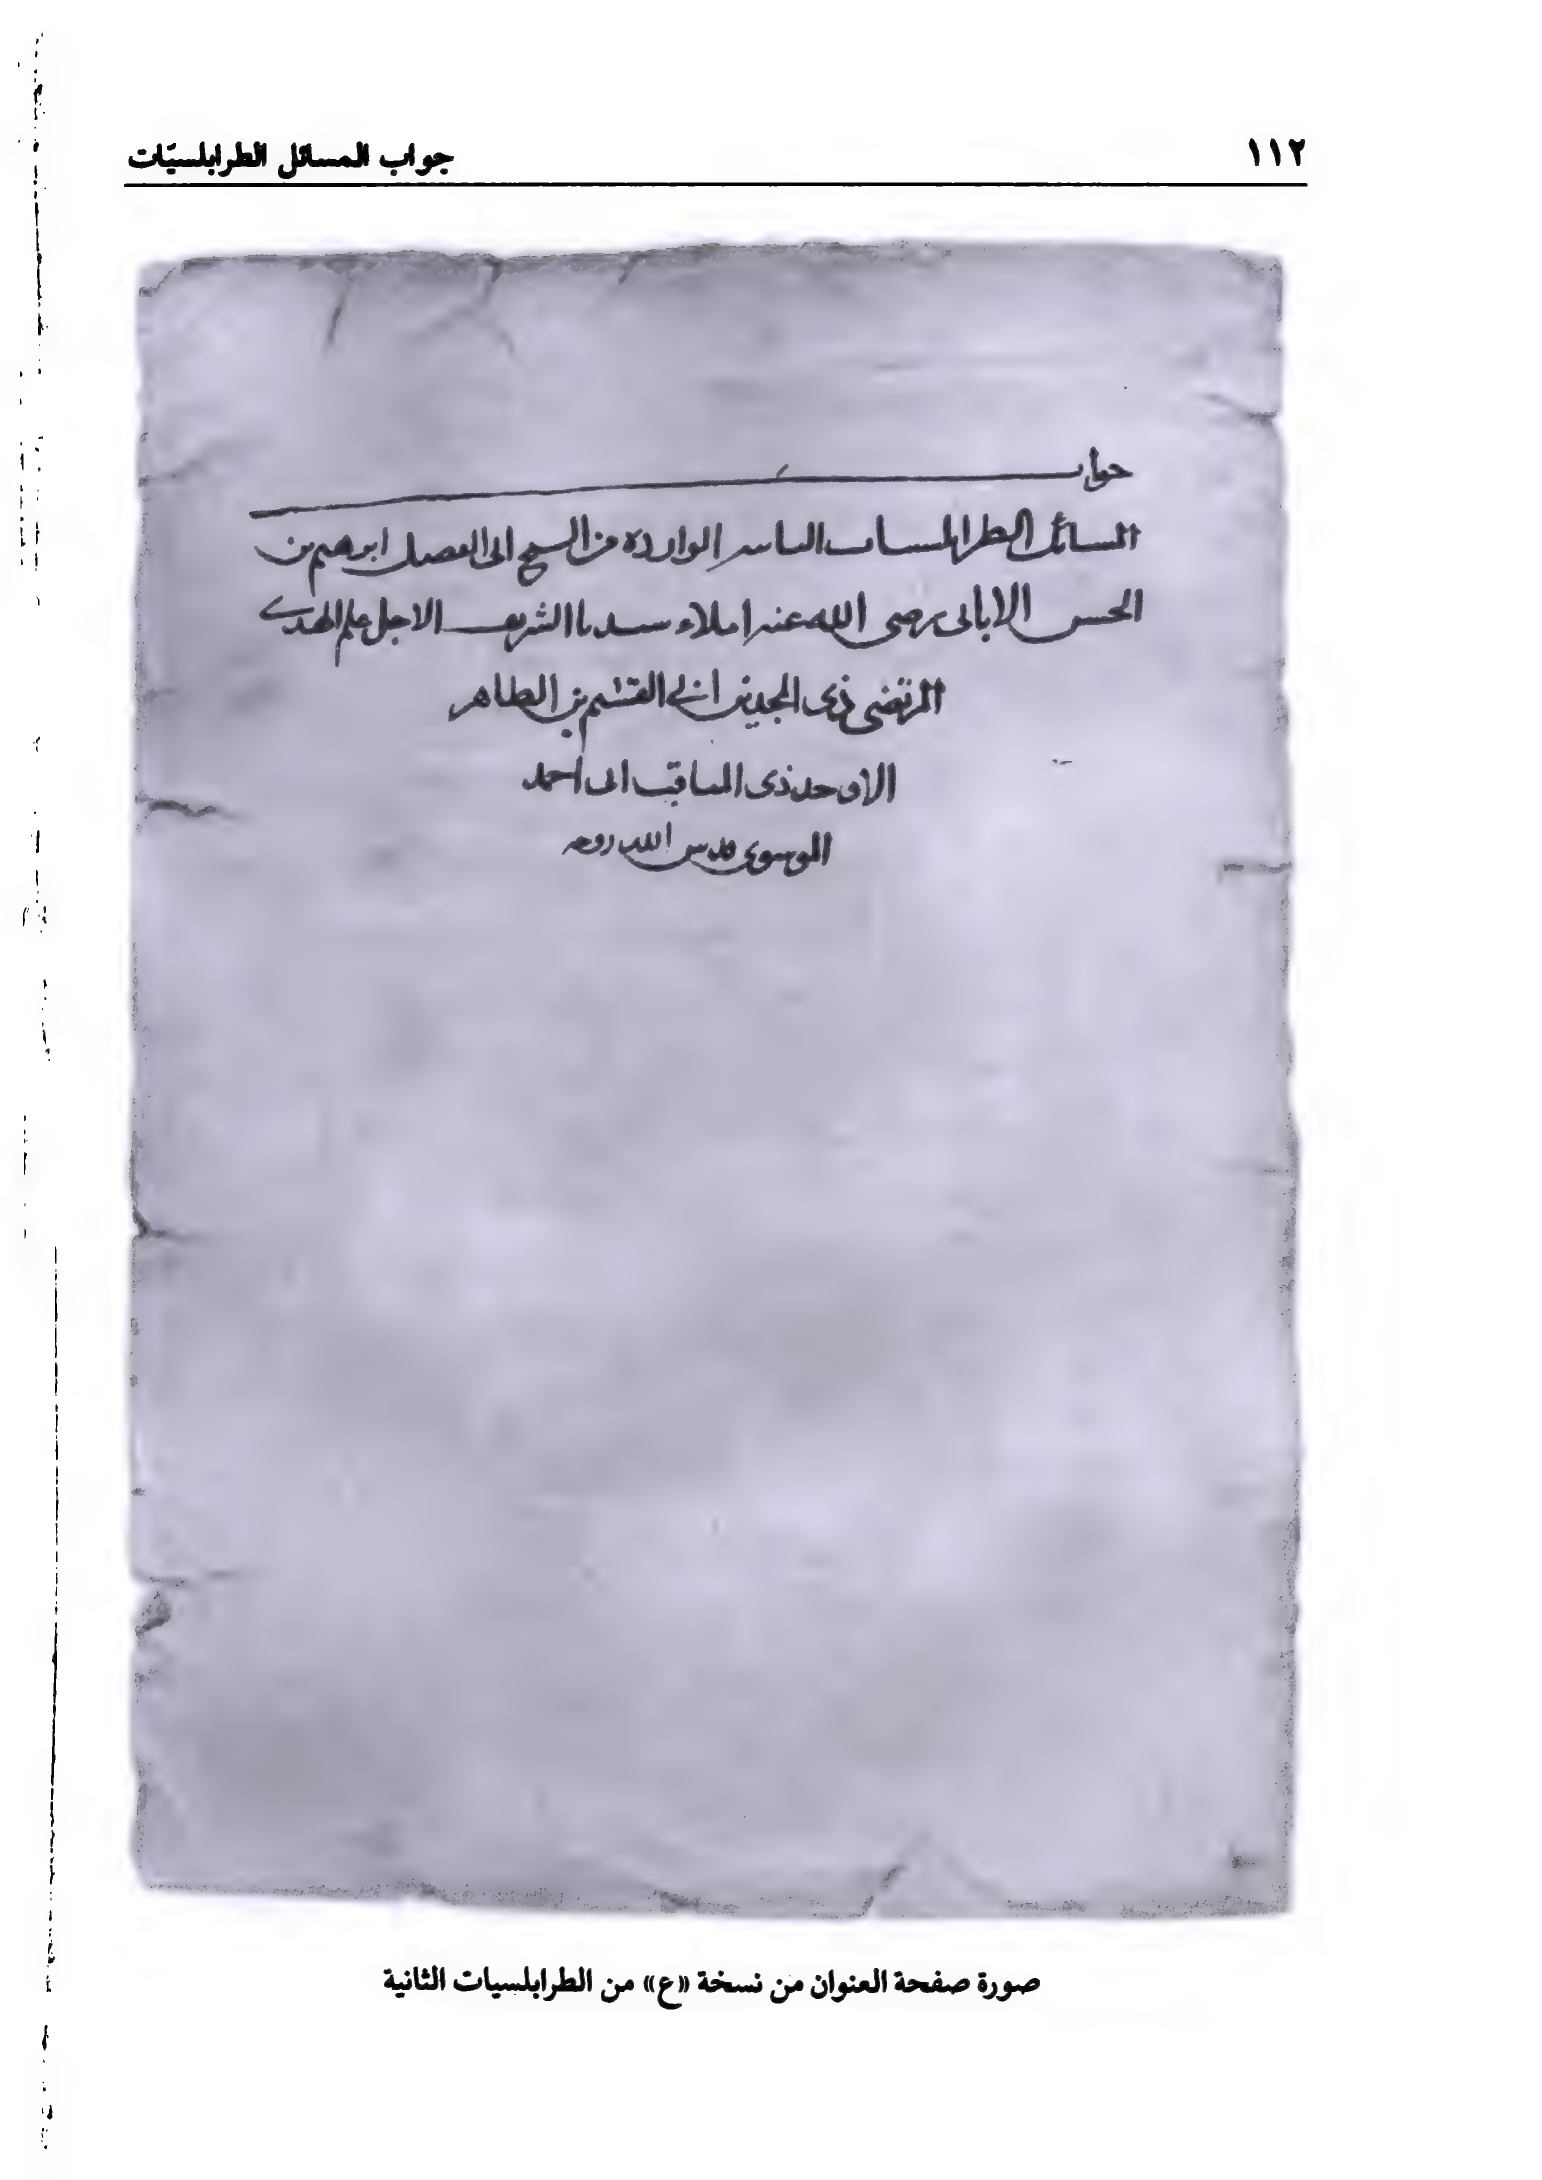 ١١٢
جواب المسائل الطرابلسيّات
جواب
المسائل الطرابلسيات الثانية الواردة من الشيخ ابى الفضل ابرهيم بن
الحسن الابانى رضى الله عنه املاء سيدنا الشريف الاجل علم الهدى
المرتضى ذى المجدين ابى القسم بن الطاهر
الاوحد ذى المناقب ابى احمد
الموسوى قدس الله روحه
صورة صفحة العنوان من نسخة «ع» من الطرابلسيات الثانية